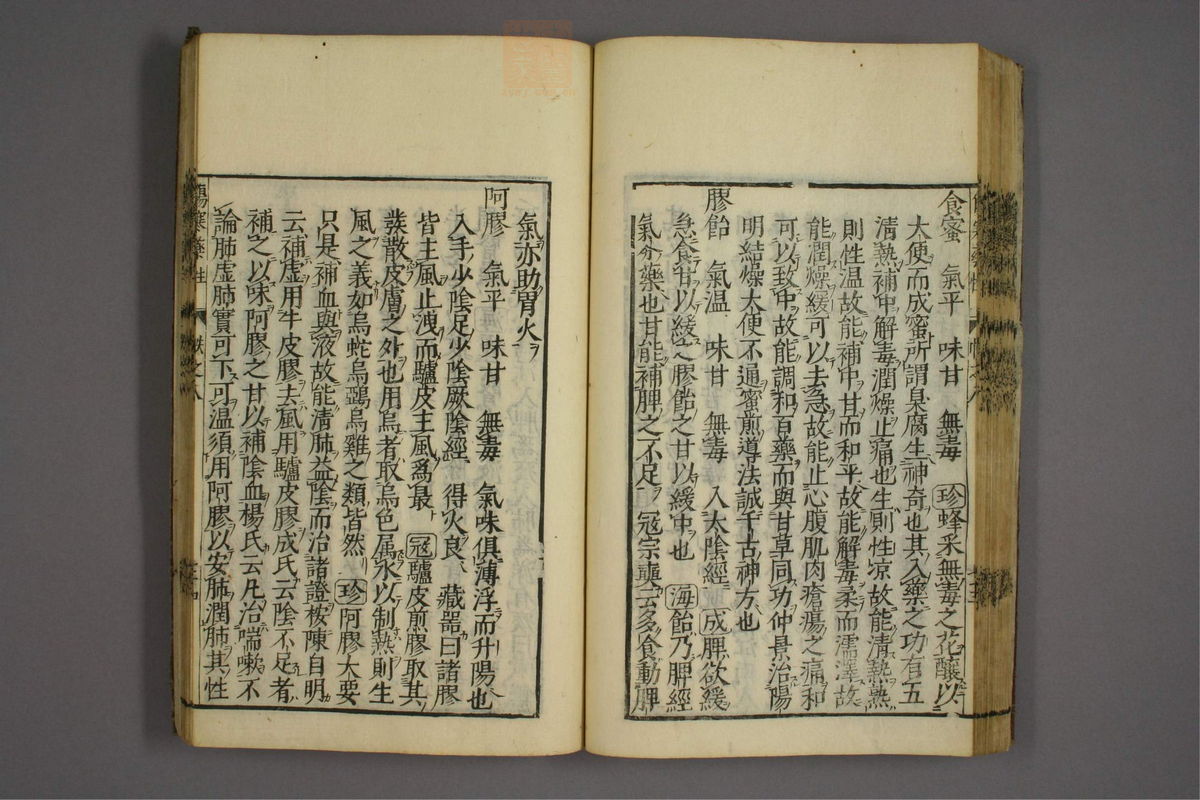 食蜜　氣平　味甘　無毒　珍蜂采無毒之花釀以
大便而成蜜所謂臭腐生神奇也其入藥之功有五
淸熱補中解毒潤燥止痛也生則性凉故能淸熱熟
則性温故能補中甘而和平故能解毒柔而濡澤故
能潤燥緩可以去急故能止心腹肌肉瘡瘍之痛和
可以致中故能調和百藥而與甘草同功仲景治陽
明結燥大便不通蜜煎導法誠千古神方也
膠飴　氣温　味甘　無毒　入太陰經　成脾欲緩
急食甘以緩之膠飴之甘以緩中也　海飴乃脾經
氣分藥也甘能補脾之不足　冦宗奭云多食動脾
氣亦助胃火
阿膠　氣平　味甘　無毒　氣味俱薄浮而升陽也
入手少陰足少陰厥陰經　得火良　藏器曰諸膠
皆主風止洩而驢皮主風爲最　冦驢皮煎膠取其
發散皮膚之外也用烏者取烏色属水以制熱則生
風之義如烏蛇烏鴉烏雞之類皆然　珍阿膠大要
只是補血與液故能淸肺益陰而治諸證桉陳自明
云補虚用牛皮膠去風用驢皮膠成氏云陰不足者
補之以味阿膠之甘以補陰血楊氏云凡治喘嗽不
論肺虚肺實可下可温須用阿膠以安肺潤肺其性
傷寒藥性　帙之八